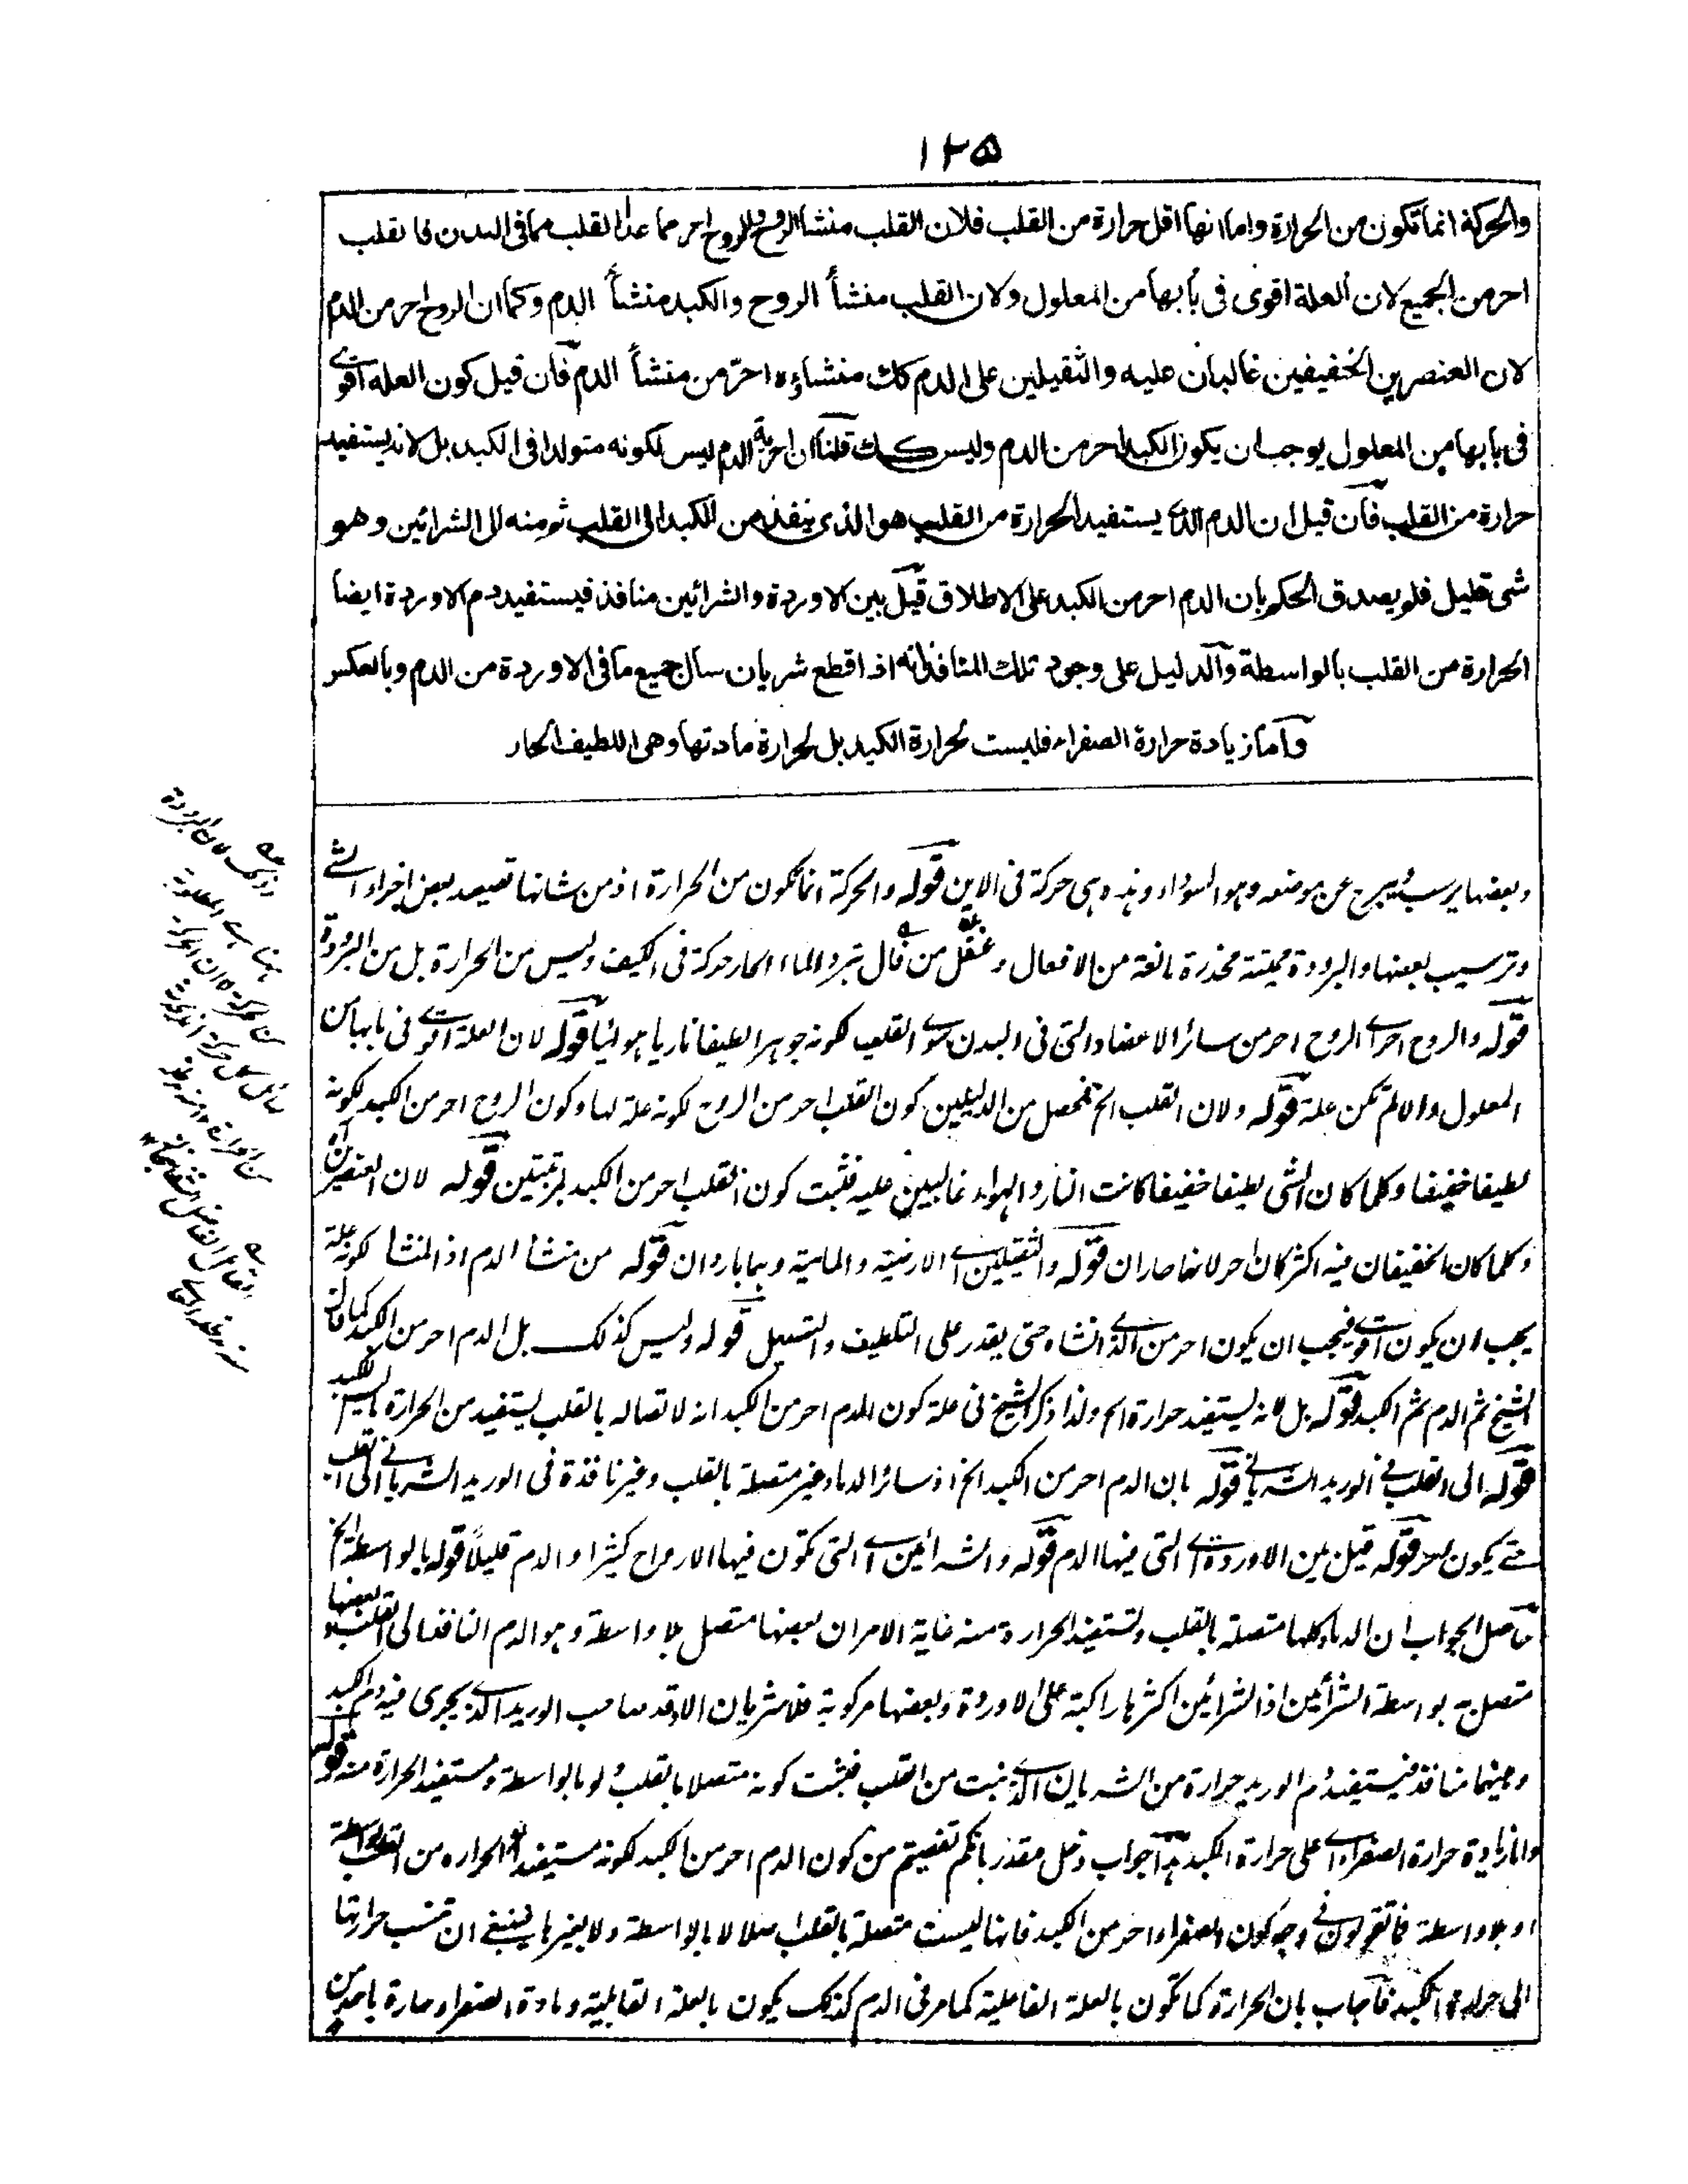 ١٢٥
والحركة انما تكون من الحرارة واما انها اقل حرارة من القلب فلان القلب منشأ الروح والروح احر مما عدا القلب مما في البدن فالقلب
احر من الجميع لان العلة اقوى في بابها من المعلول ولان القلب منشأ الروح والكبد منشأ الدم وكما ان الروح احر من الدم
لان العنصرين الخفيفين غالبان عليه والثقيلين على الدم كك منشاؤه احرّ من منشأ الدم فان قيل كون العلة اقوى
في بابها من المعلول يوجب ان يكون الكبد احر من الدم وليس كك قلنا ان احرية الدم ليس لكونه متولدا في الكبد بل لانه يستفيد
حرارة من القلب فان قيل ان الدم الذي يستفيد الحرارة من القلب هو الذي ينفذ من الكبد الى القلب ثم منه الى الشرائين وهو
شئ قليل فلم يصدق الحكم بان الدم احر من الكبد على الاطلاق قيل بين الاوردة والشرائين منافذ فيستفيد دم الاوردة ايضا
الحرارة من القلب بالواسطة والدليل على وجود تلك المنافذ انه اذا قطع شريان سال جميع ما في الاوردة من الدم وبالعكس
واما زيادة حرارة الصفراء فليست لحرارة الكبد بل لحرارة مادتها وهي اللطيف الحار
وبعضها يرسب ويبرح عن موضعه وهو السوداء وهذه هي حركة في الاين قوله والحركة انما تكون من الحرارة اذ من شانها تصعيد بعض اجزاء الشئ
وترسيب بعضها والبرودة مميتة مخدرة مانعة من الافعال وغفل من قال تبرد الماء الحار حركة في الكيف وليس من الحرارة بل من البرودة
قوله والروح احر اى الروح احر من سائر الاعضاء التي في البدن سوى القلب لكونه جوهرا لطيفا ناريا هوائيا قوله لان العلة اقوى في بابها من
المعلول والا لم تكن علة قوله ولان القلب الخ فتحصل من الدليلين كون القلب احر من الروح لكونه علة لها وكون الروح احر من الكبد لكونه
لطيفا خفيفا وكلما كان الشئ لطيفا خفيفا كانت النار والهواء غالبين عليه فثبت كون القلب احر من الكبد بمرتبتين قوله لان العنصرين اه
وكلما كان الخفيفان فيه اكثر كان احر لانهما حاران قوله والثقيلين اى الارضية والمائية وهما باردان قوله من منشأ الدم اذ المنشا لكونه علة
يجب ان يكون اقوى فيجب ان يكون احر من الذى انشاه حتى يقدر على التلطيف والتسييل قوله وليس كذلك بل الدم احر من الكبد كما قال
الشيخ ثم الدم ثم الكبد قوله بل لانه يستفيد حرارة الخ ولذا ذكر الشيخ في علة كون الدم احر من الكبد انه لاتصاله بالقلب يستفيد من الحرارة ما ليس للكبد
قوله الى القلب في الوريد الشريانى قوله بان الدم احر من الكبد الخ اذ سائر الدماء غير متصلة بالقلب وغير نافذة في الوريد الشريانى الى القلب
حتى يكون احر قوله قيل بين الاوردة اى التي فيها الدم قوله والشرائين اى التي تكون فيها الارواح كثيرا والدم قليلا قوله بالواسطة الخ
حاصل الجواب ان الدماء كلها متصلة بالقلب وتستفيد الحرارة منه غاية الامر ان بعضها متصل بلا واسطة وهو الدم النافذ الى القلب وبعضها
متصل به بواسطة الشرائين اذ الشرائين اكثرها راكبة على الاوردة وبعضها مركوبة فلا شريان الا وقد صاحب الوريد الذى يجرى فيه دم الكبد
وبينهما منافذ فيستفيد دم الوريد حرارة من الشريان الذى نبت من القلب فثبت كونه متصلا بالقلب ولو بالواسطة ومستفيد الحرارة منه قوله
واما زيادة حرارة الصفراء اى على حرارة الكبد هذا جواب دخل مقدر بانكم تفصيتم من كون الدم احر من الكبد لكونه مستفيد الحرارة من القلب بالواسطة
او بلا واسطة فما تقولون في وجه كون الصفراء احر من الكبد فانها ليست متصلة بالقلب اصلا لا بالواسطة ولا بغيرها فينبغى ان تنسب حرارتها
الى حرارة الكبد فاجاب بان الحرارة كما تكون بالعلة الفاعلية كما مر في الدم كذلك يكون بالعلة القابلية ومادة الصفراء حارة باحد من